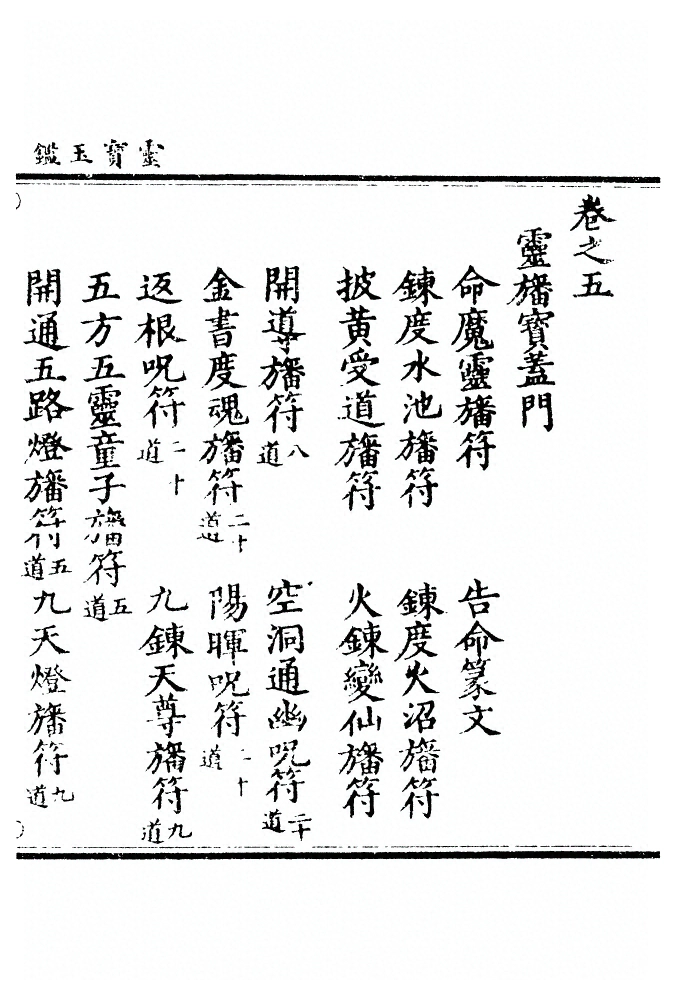 靈寶玉鑑
卷之五
靈旛寶蓋門
命魔靈旛符 告命篆文
鍊度水池旛符 鍊度火沼旛符
披黃受道旛符 火鍊變仙旛符
開導旛符八道 空洞通幽呪符二十道
金書度魂旛符二十道 陽暉呪符二十道
返根呪符二十道 九鍊天尊旛符九道
五方五靈童子旛符五道
開通五路燈旛符五道 九天燈旛符九道